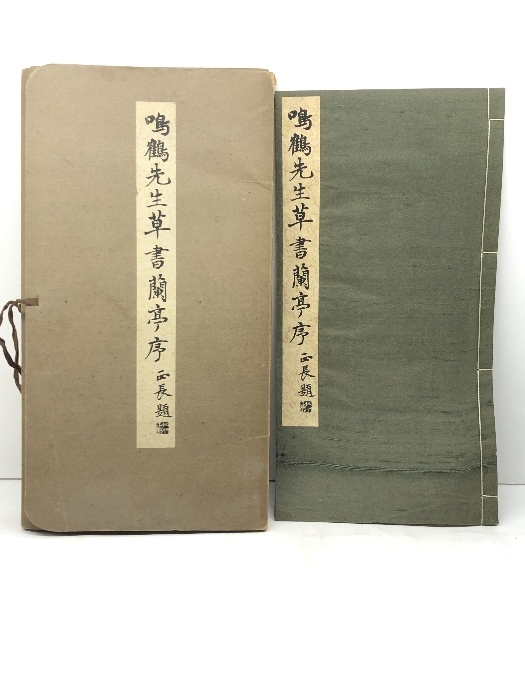 鳴鶴先生草書蘭亭序 正長題
鳴鶴先生草書蘭亭序 正長題